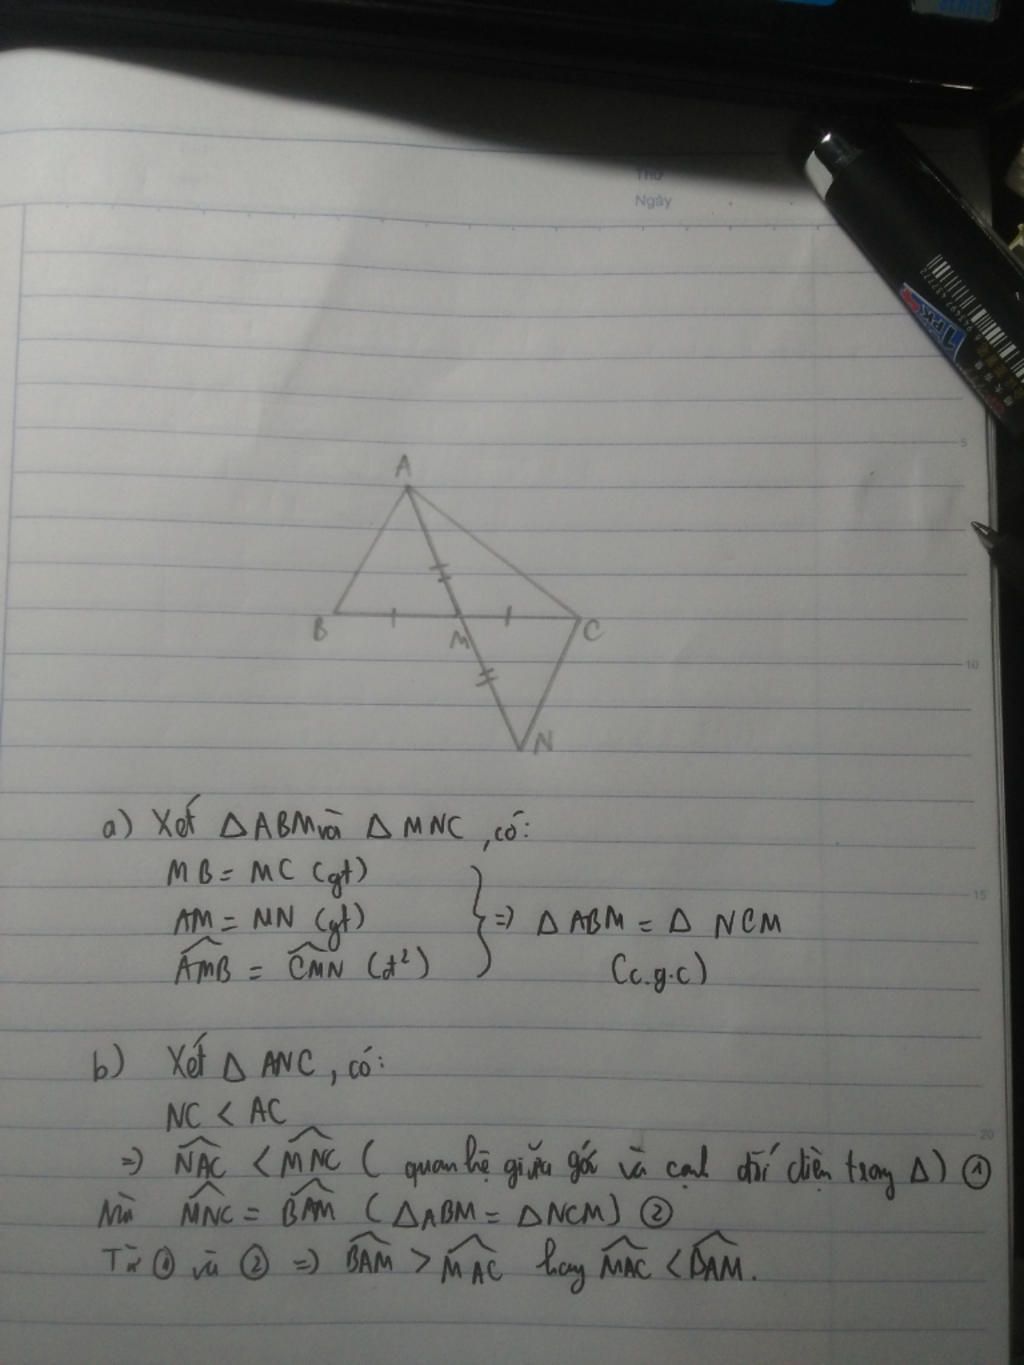 Thứ
Ngày
5
A
B
M
C
10
N
a) Xét Δ ABM và Δ MNC, có:
MB = MC (gt)
15
AM = MN (gt)
=> Δ ABM = Δ NCM
AMB = CMN (đ²)
(c.g.c)
b) Xét Δ ANC, có:
NC < AC
20
=> NAC < MNC ( quan hệ giữa góc và cạnh đối diện trong Δ) ①
Mà MNC = BAM ( ΔABM = ΔNCM) ②
Từ ① và ② => BAM > MAC hay MAC < BAM.